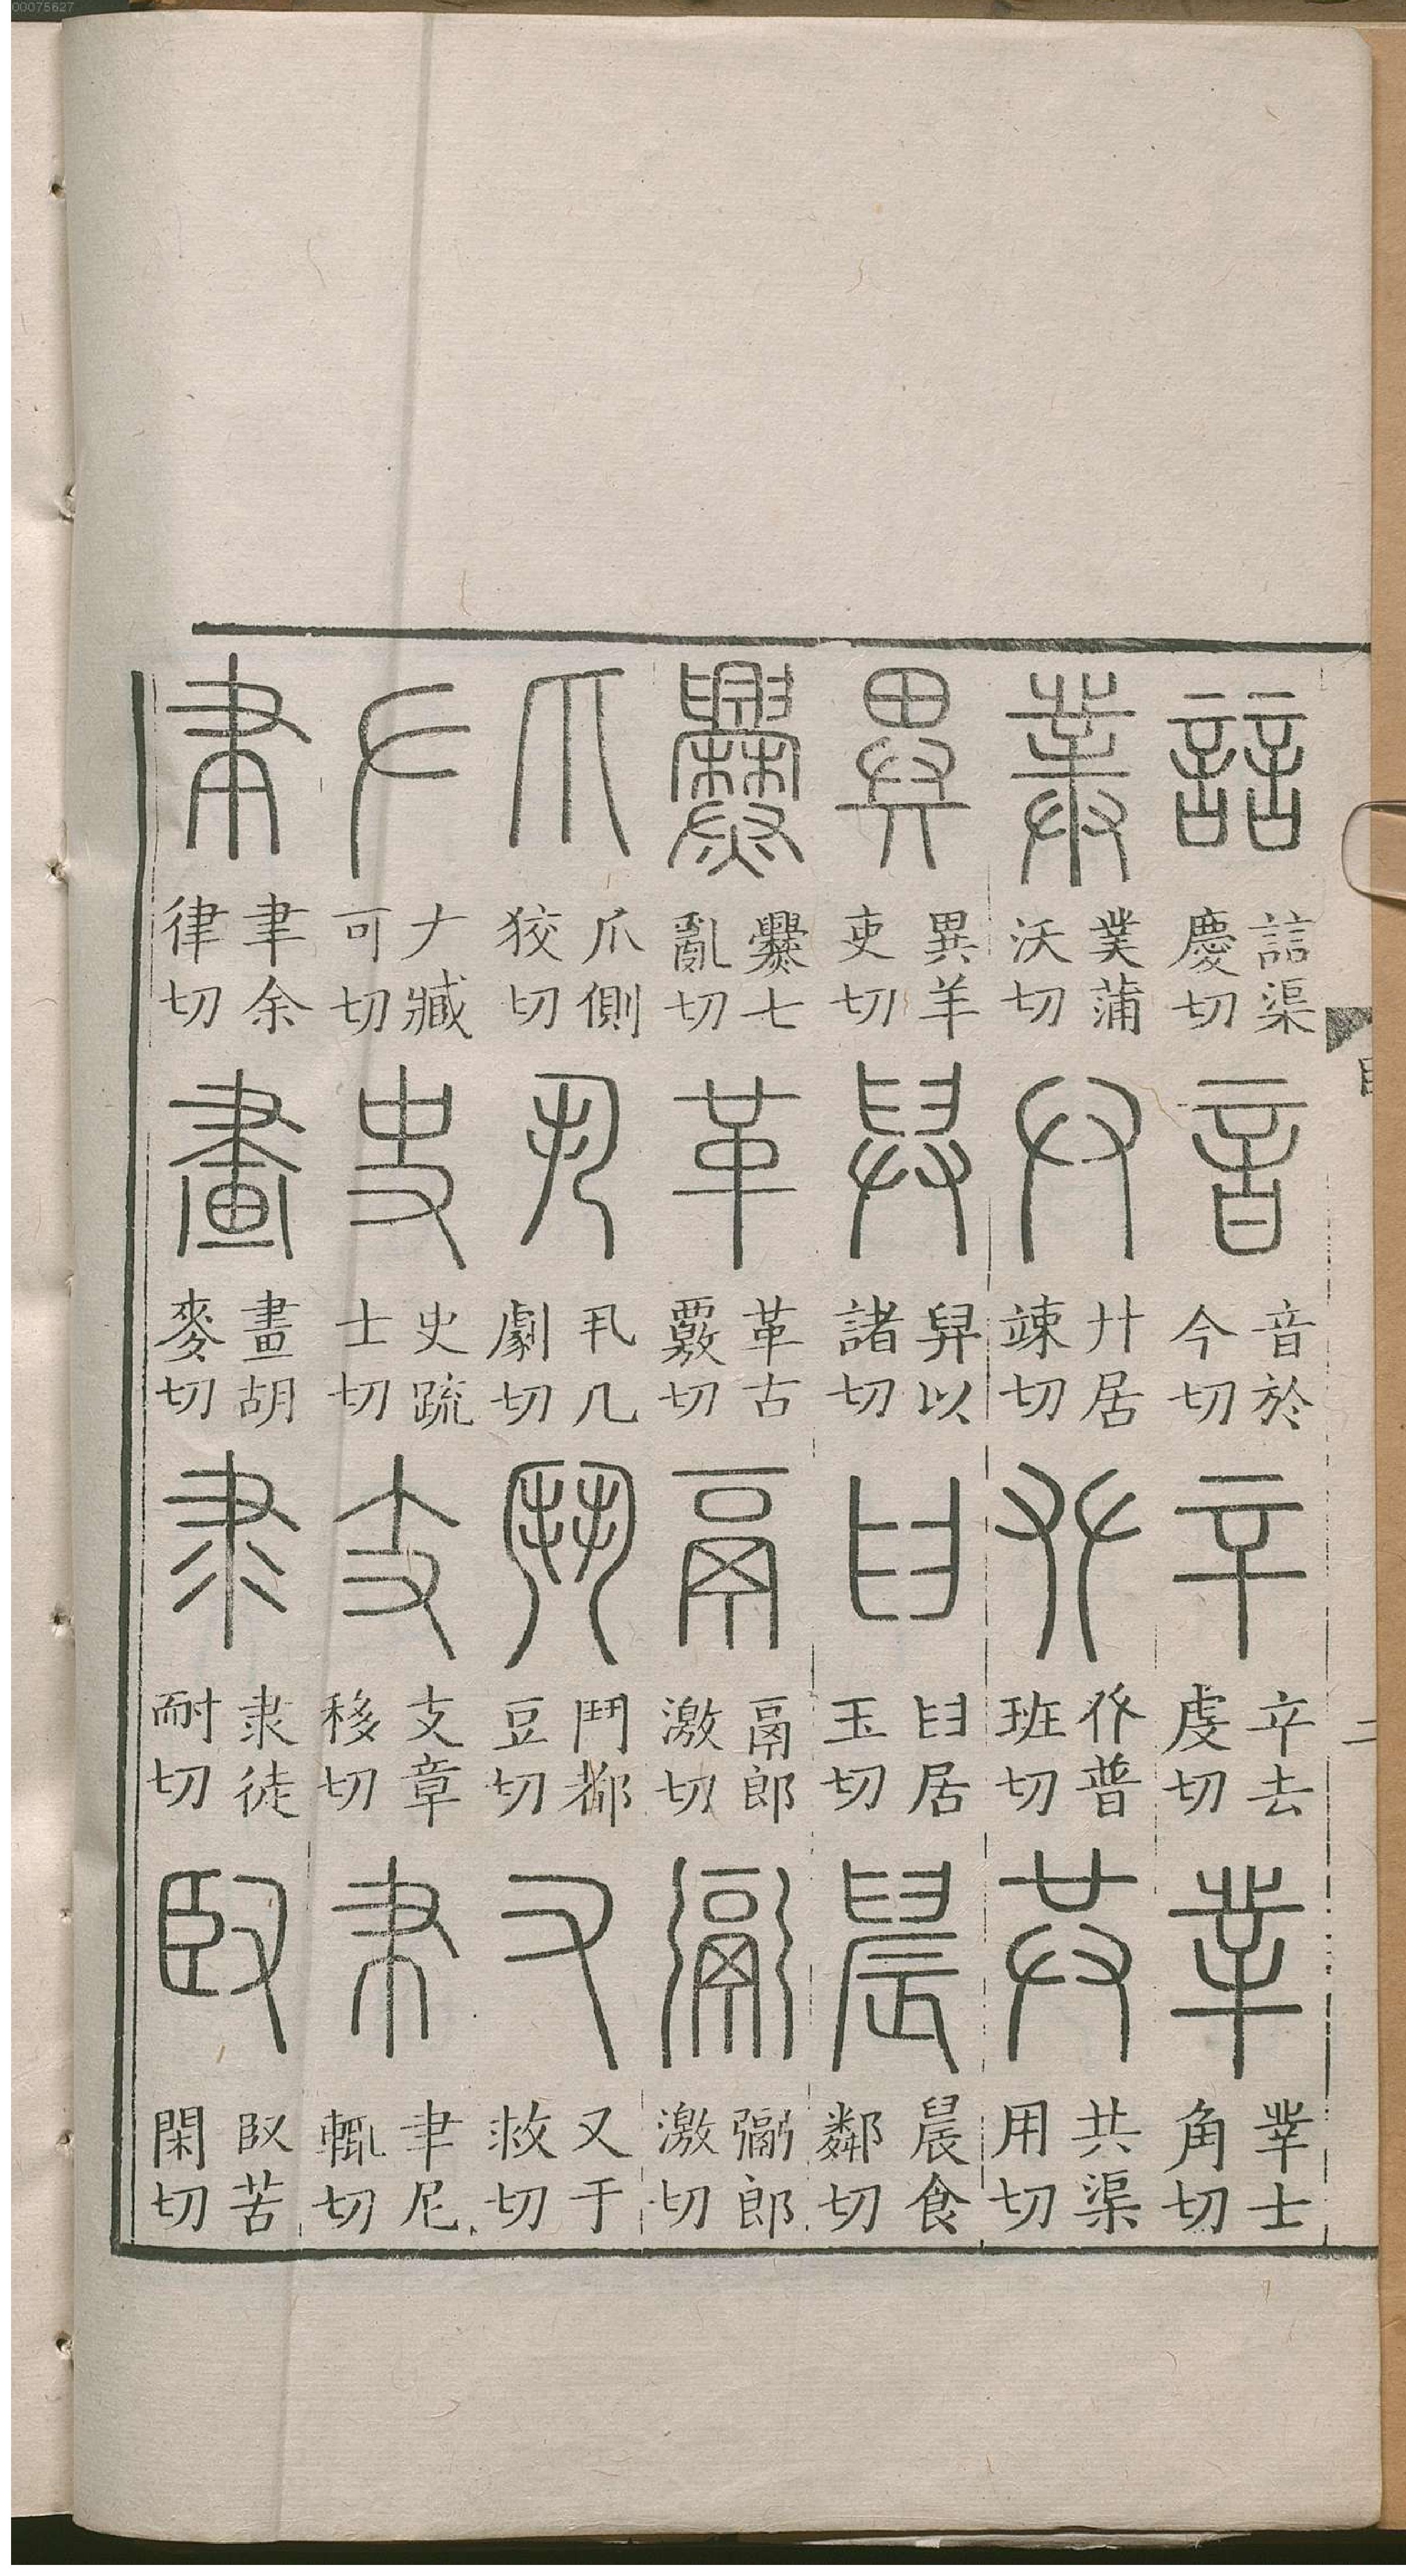 00075627
目
二
誩 誩渠慶切
音 音於今切
䇂 䇂去虔切
丵 丵士角切
菐 菐蒲沃切
廾 廾居竦切
𠬜 𠬜普班切
共 共渠用切
異 異羊吏切
舁 舁以諸切
𦥑 𦥑居玉切
晨 晨食鄰切
爨 爨七亂切
革 革古覈切
鬲 鬲郎激切
䰜 䰜郎激切
爪 爪側狡切
丮 丮几劇切
鬥 鬥都豆切
又 又于救切
𠂇 𠂇臧可切
史 史疏士切
支 支章移切
𦘒 𦘒尼輒切
聿 聿余律切
畫 畫胡麥切
隶 隶徒耐切
臤 臤苦閑切